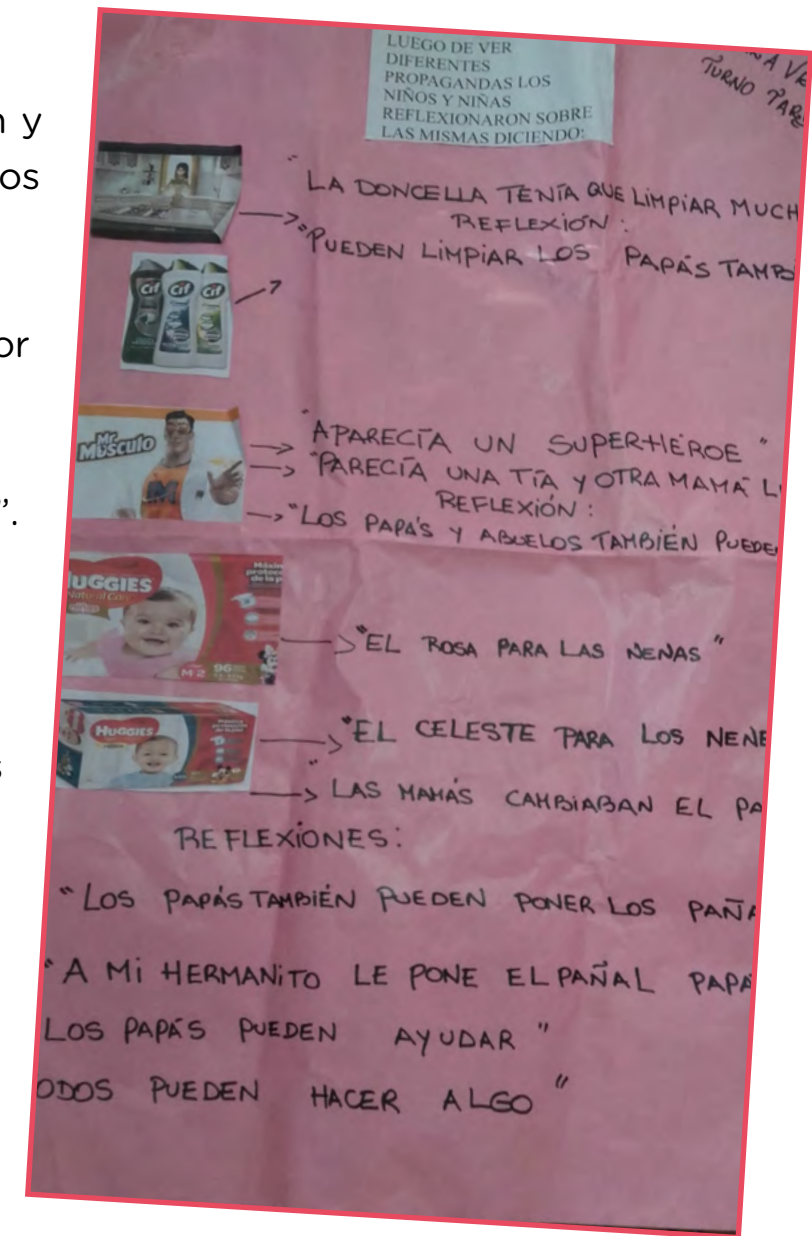 n y
os
or
”.
s
LUEGO DE VER
DIFERENTES
PROPAGANDAS LOS
NIÑOS Y NIÑAS
REFLEXIONARON SOBRE
LAS MISMAS DICIENDO:
TURNO TAR
"LA DONCELLA TENÍA QUE LIMPIAR MUCH
REFLEXIÓN:
"PUEDEN LIMPIAR LOS PAPÁS TAMBI
Cif Cif Cif
Mr
Músculo
M
"APARECÍA UN SUPERHÉROE"
"PARECÍA UNA TÍA Y OTRA MAMÁ L
REFLEXIÓN:
"LOS PAPÁS Y ABUELOS TAMBIÉN PUEDE
HUGGIES
Natural Care
Máxim
protec
de la p
M 2 96
"EL ROSA PARA LAS NENAS"
HUGGIES
"EL CELESTE PARA LOS NENE
"LAS MAMÁS CAMBIABAN EL PA
REFLEXIONES:
"LOS PAPÁS TAMBIÉN PUEDEN PONER LOS PAÑA
"A MI HERMANITO LE PONE EL PAÑAL PAPÁ
LOS PAPÁS PUEDEN AYUDAR"
ODOS PUEDEN HACER ALGO"